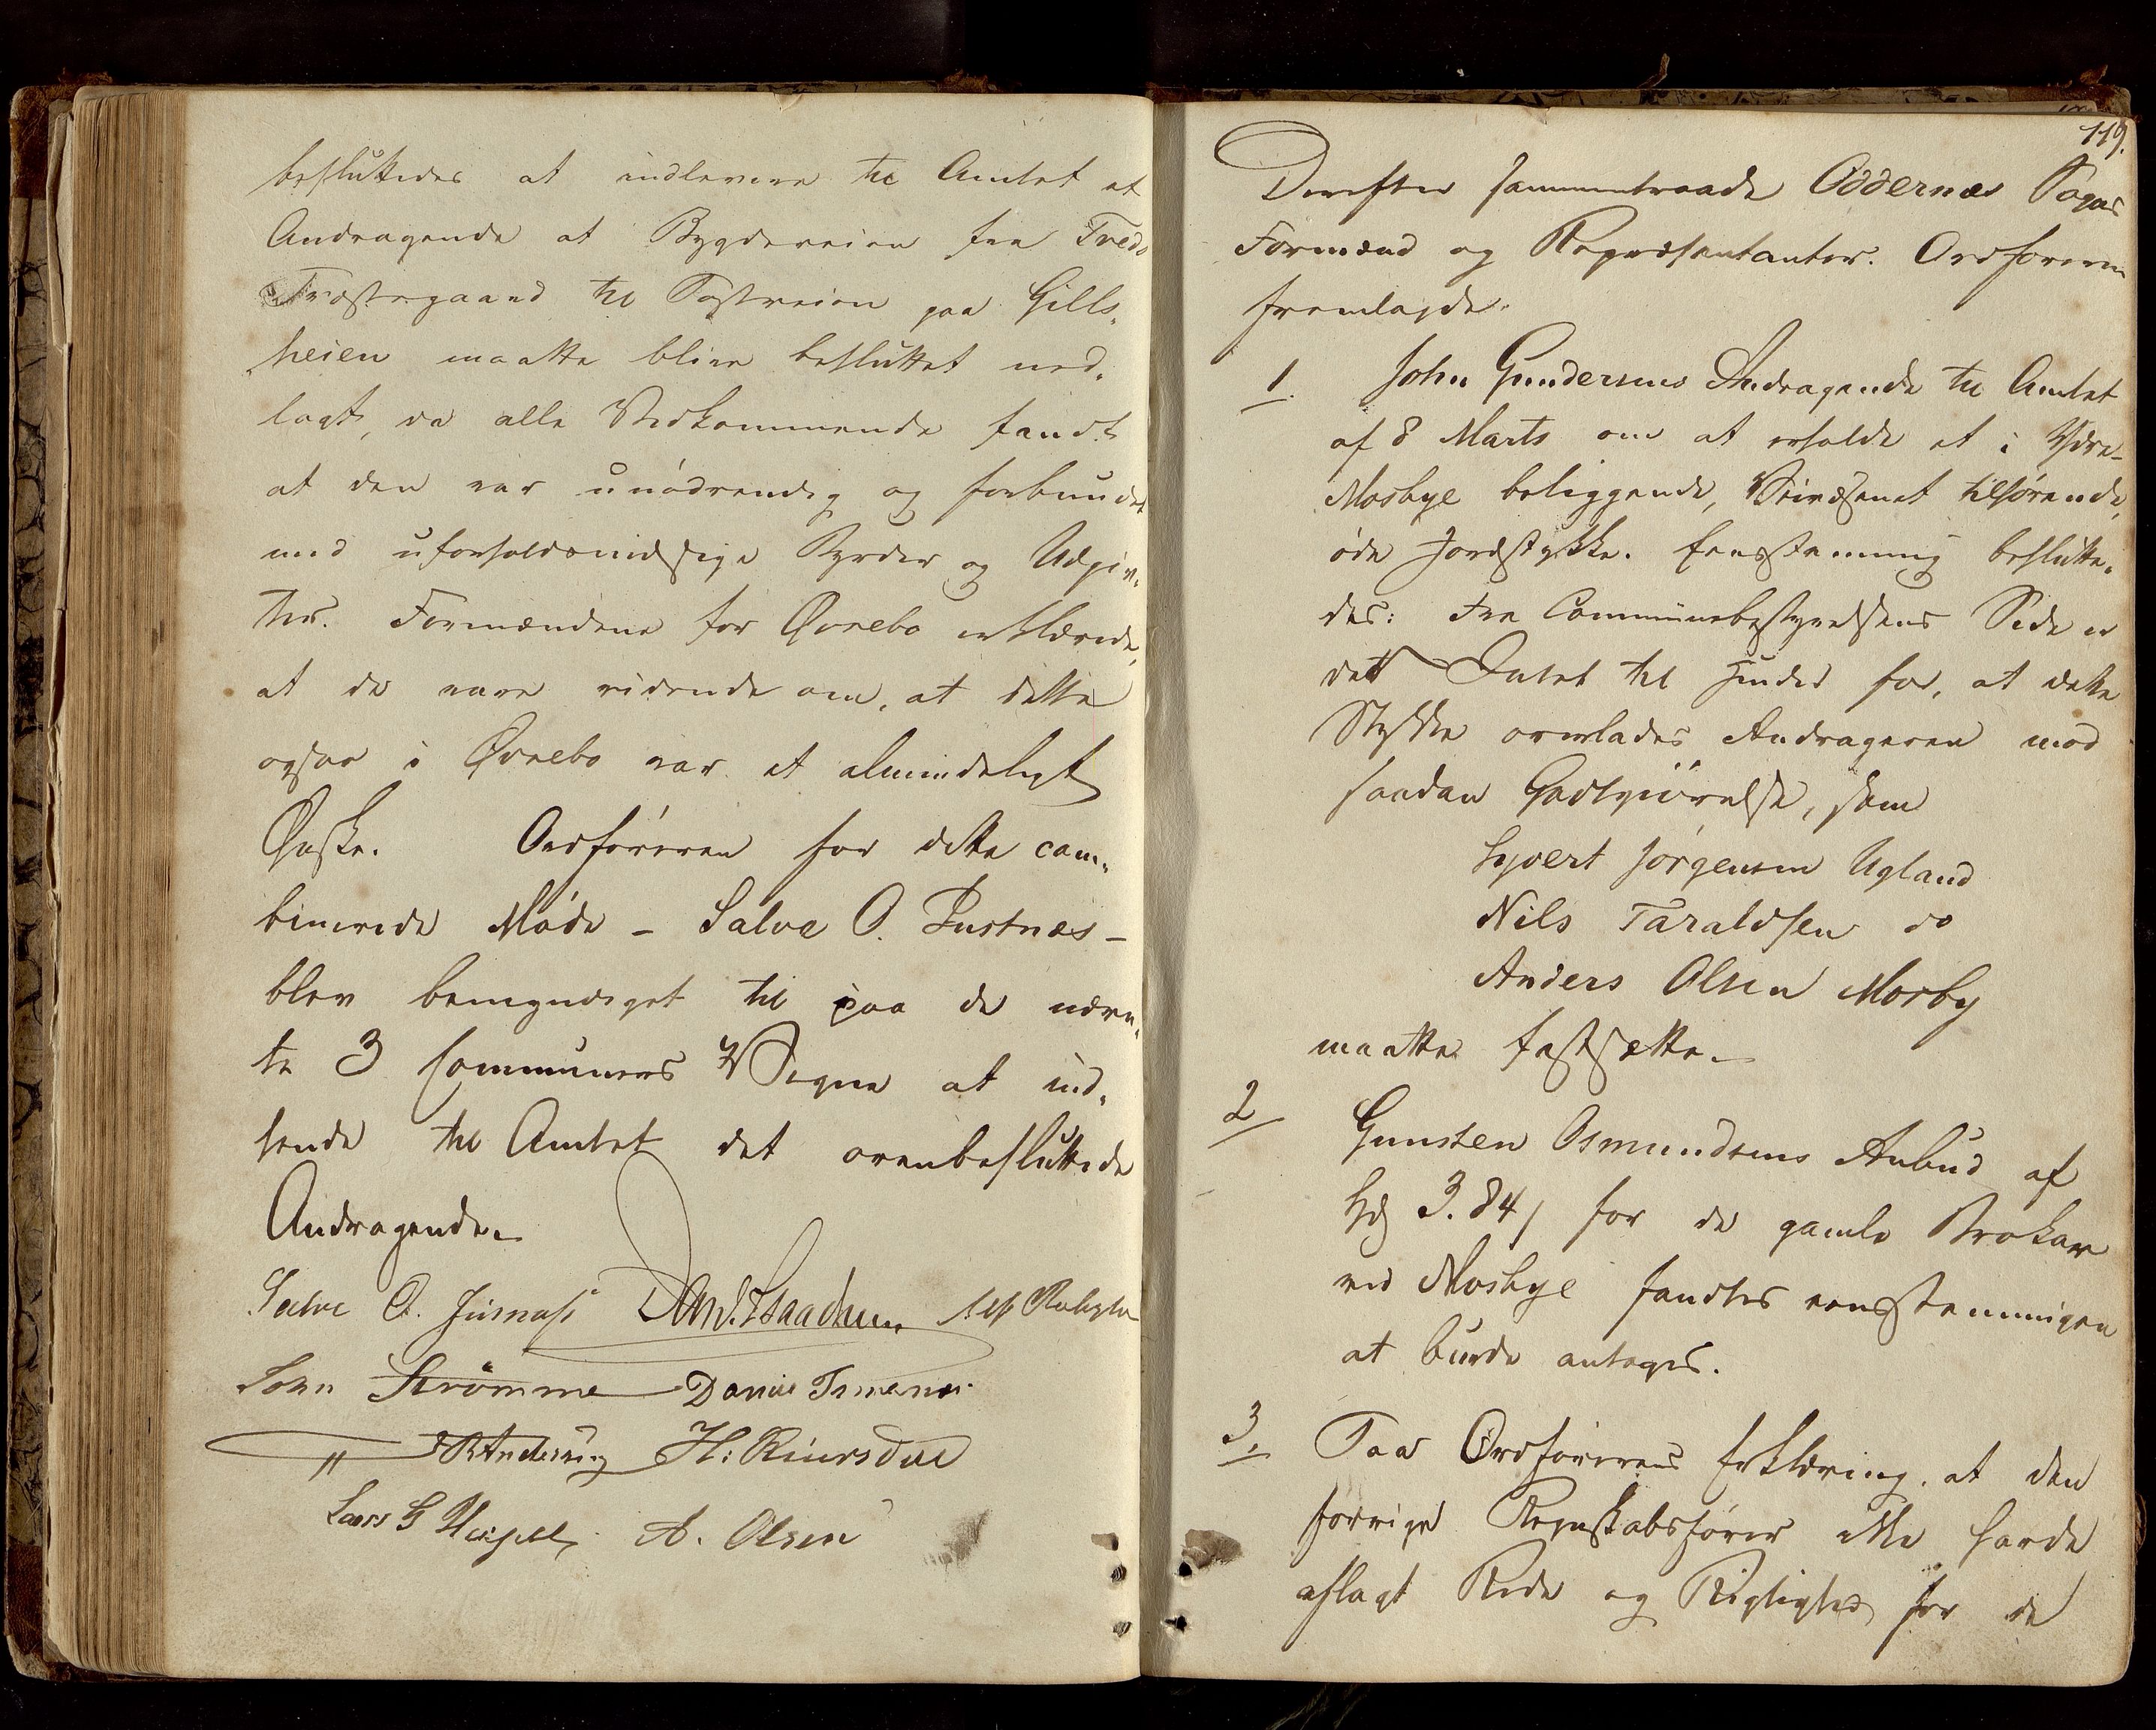 besluttedes at indlevere til Amtet et
Andragende at Bygdeveien fra Tveds
Præstegaard til Postveien paa Gills-
heien maatte blive besluttet ned-
lagt, da alle Vedkommende fandt
at den var unödvendig og forbundet
med uforholdsmæssige Byrder og Udgiv-
ter. Formændene for Øvrebo erklærede,
at de vare vidende om, at dette
ogsaa i Øvrebo var et almindeligt
Ønske. Ordføreren for dette com-
binerede Møde - Salve O. Justnæs -
blev bemyndiget til paa de nævn-
te 3 Communers Vegne at ind-
sende til Amtet det ovenbesluttede
Andragende.
Salve O. Jusnæs
Sørn Strømme Daniel
Andersen H: Riiersdal
Lars G A. Olsen
119.
Derefter sammentraadte Oddernæs Sogns
Formænd og Repræsentanter. Ordføreren
fremlagde.
1. John Gundersens Andragende til Amtet
af 8 Marts om at erholde et i Ydre-
Mosbye beliggende, Veivæsenet tilhørende,
øde Jordstykke. Eensstemmig beslutte-
des: Fra Communebestyrelsens Side er
det Intet til Hinder for, at dette
Stykke overlades Andrageren mod
saadan Godtgiörelse, som
Syvert Jörgensen Ugland
Nils Taraldsen do
Anders Olsen Mosby
maatte fastsætte.
2 Gunsten Osmundsens Anbud af
Spd 3. 84/ for de gamle Brokar
ved Mosbye fandtes eensstemmigen
at burde antages.
3. Paa Ordførerens Erklæring, at den
forrige Regnskabsfører ikke havde
aflagt Rede og Rigtighed for de